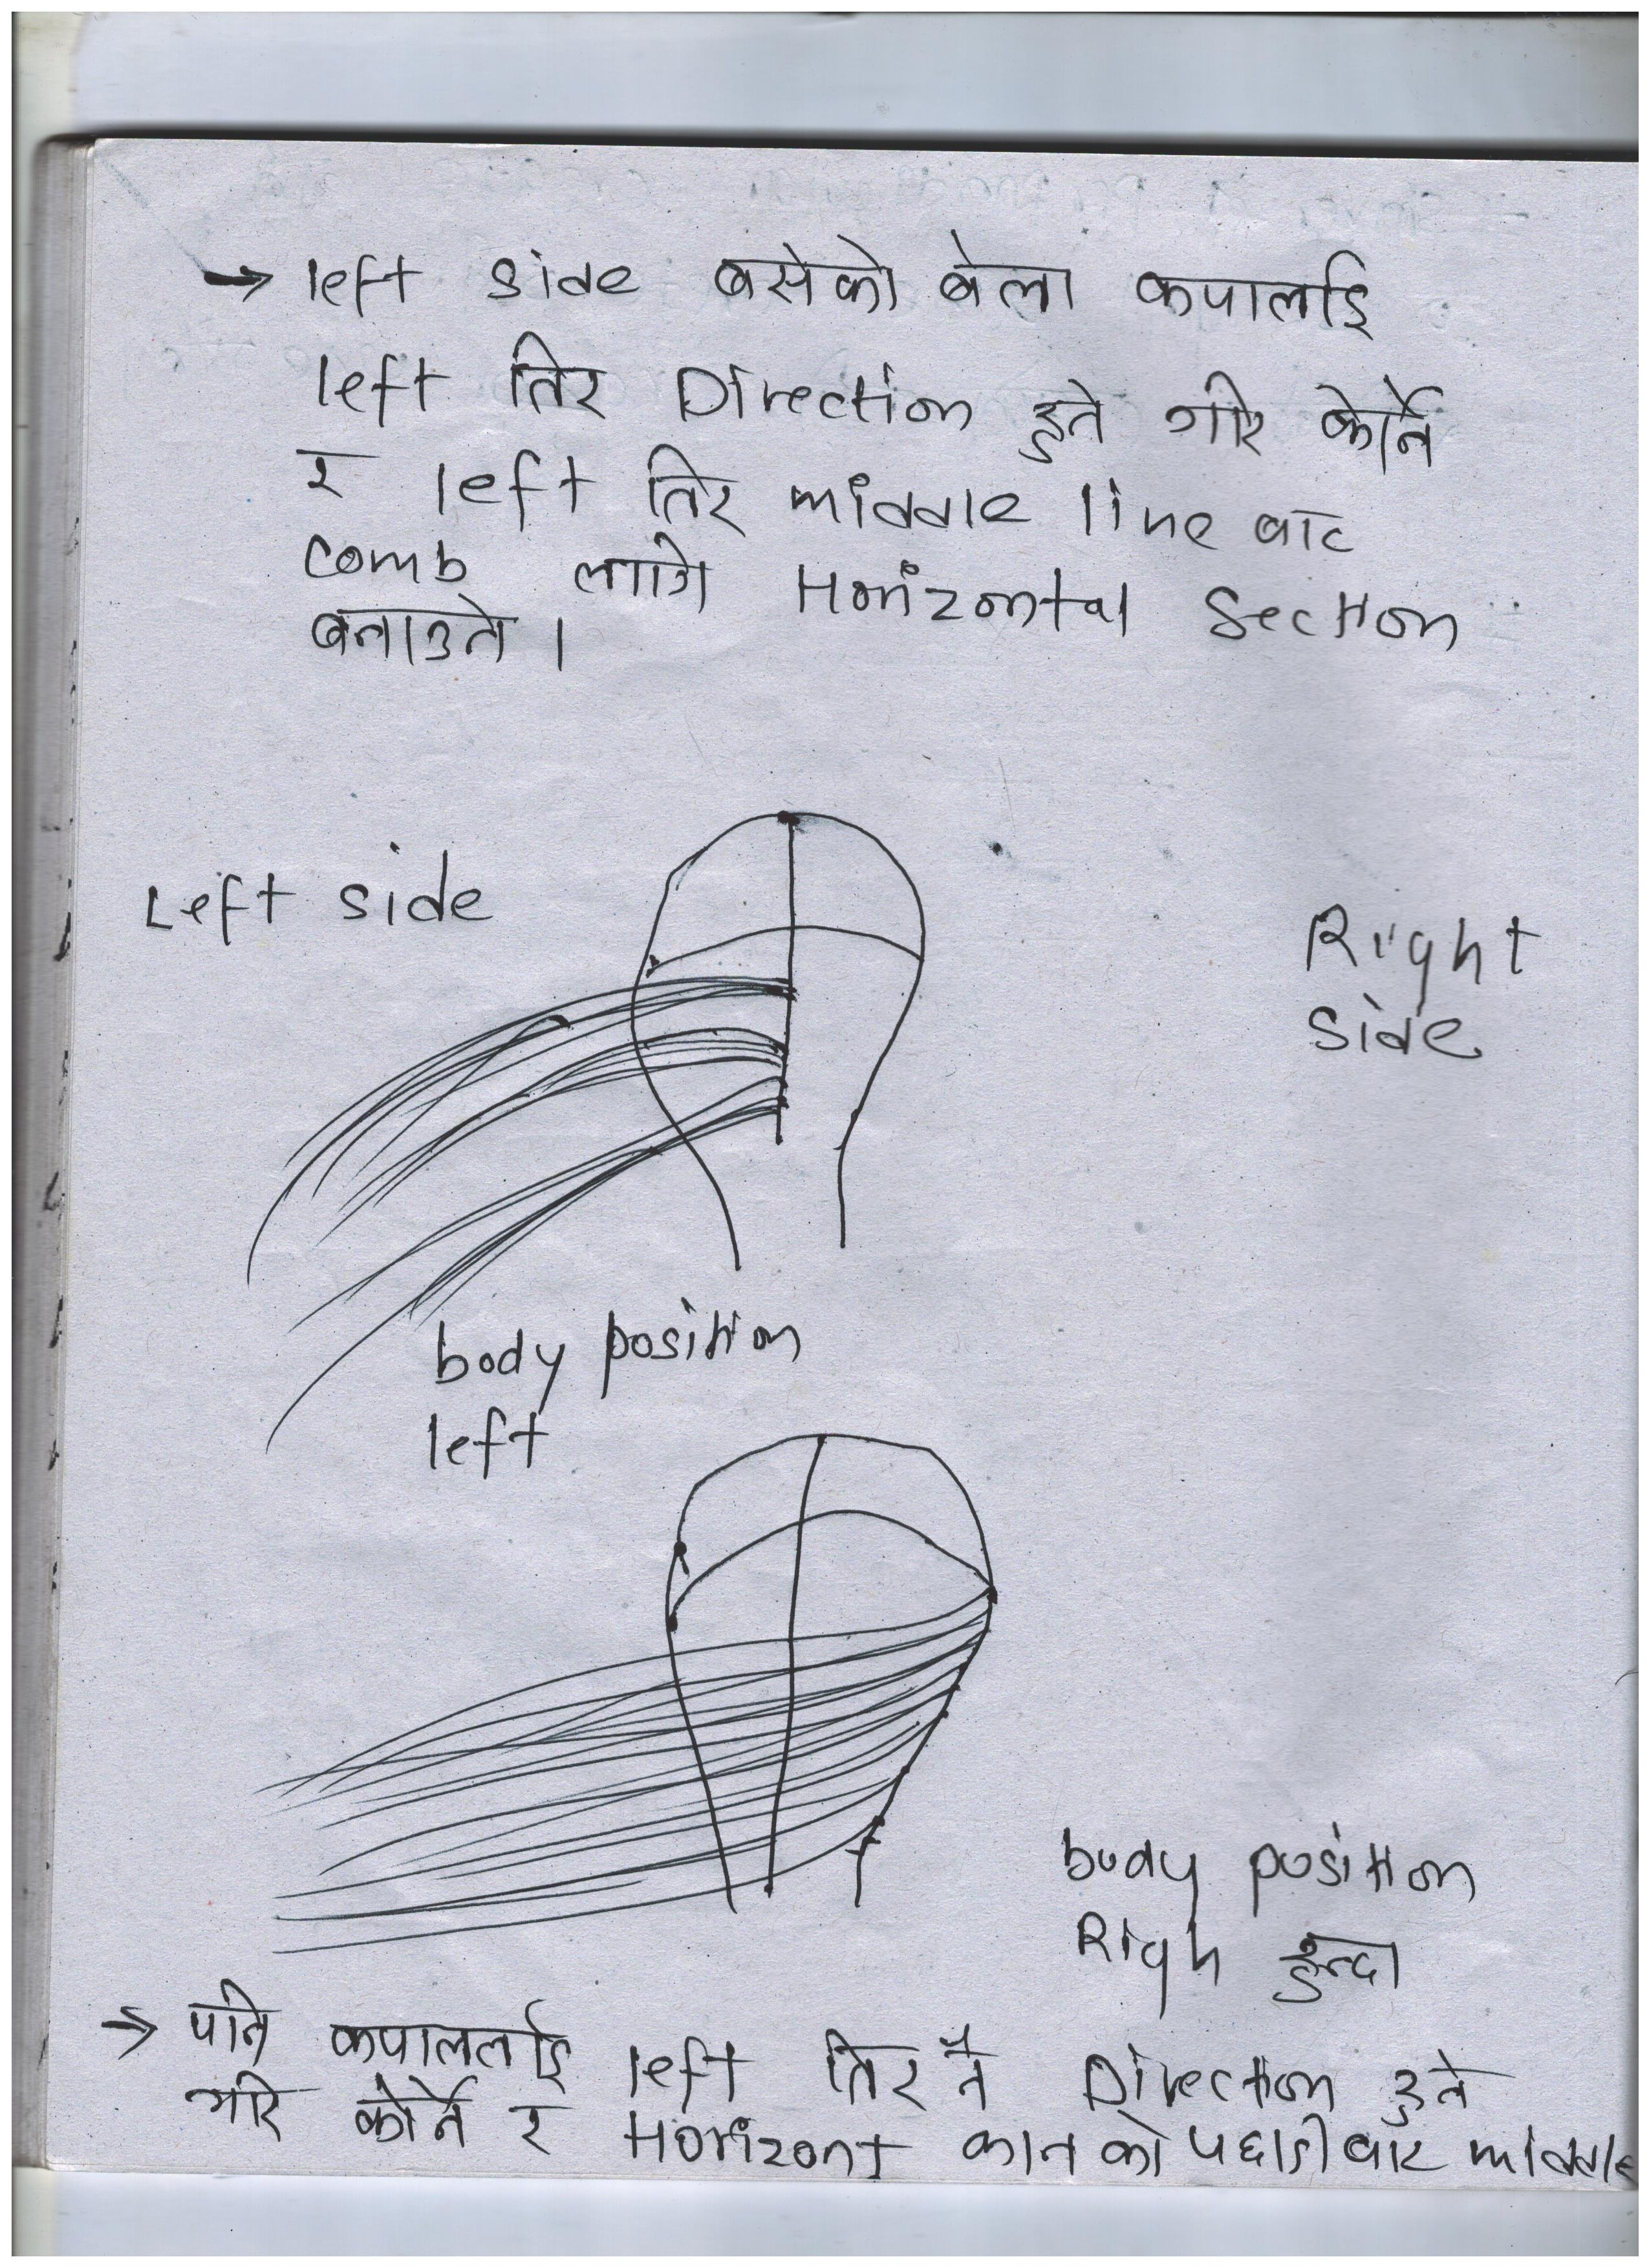 → left side बसेको बेला कपाललाई
left तिर Direction हुने गरि कोर्ने
र left तिर middle line बाट
comb लागि Horizontal Section
बनाउने ।
Left side
Right
side
body position
left
body position
Righ हुन्दा
→ पनि कपाललाई left तिर नै Direction हुने
गरि कोर्ने र Horizont कान को पछाडी बाट middle